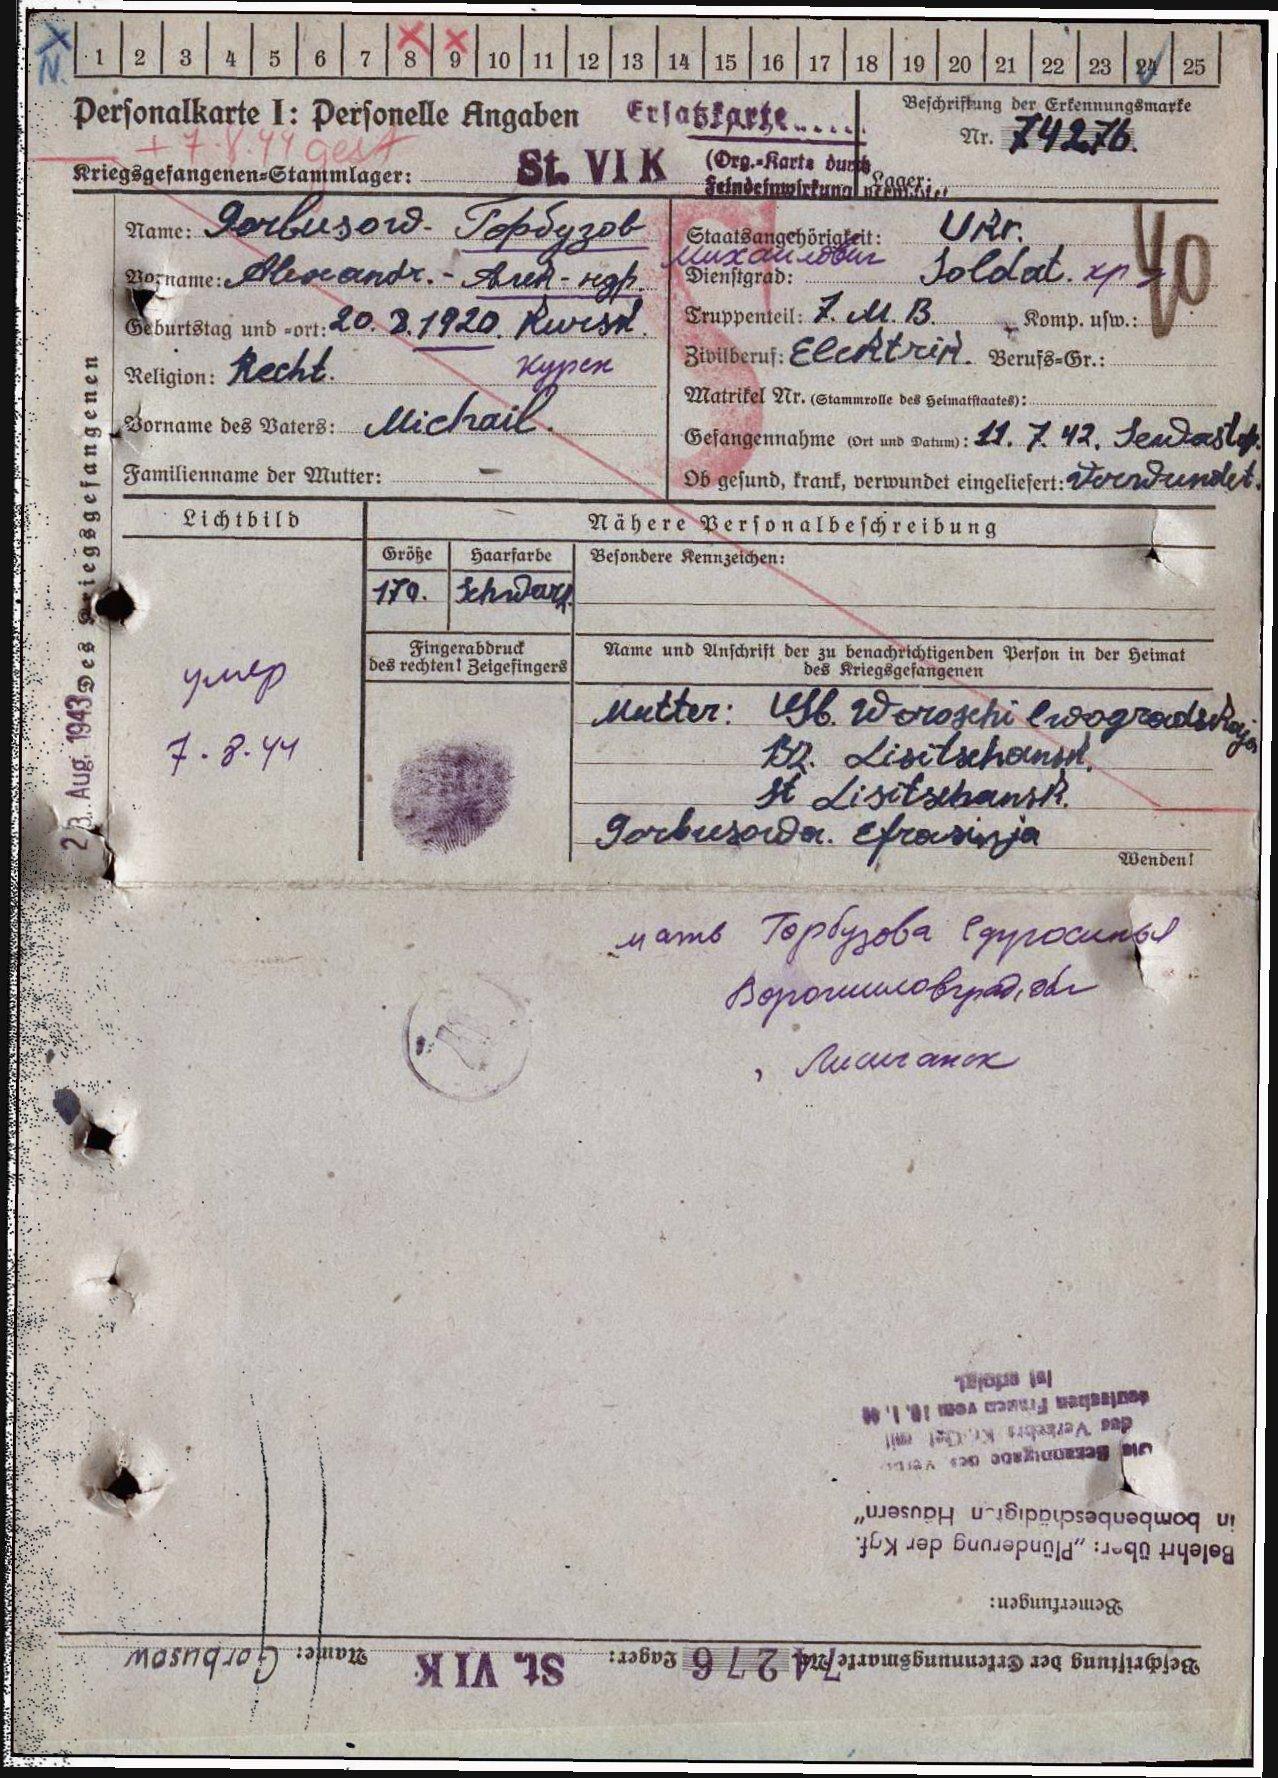 N. 1 2 3 4 5 6 7 8 9 10 11 12 13 14 15 16 17 18 19 20 21 22 23 24 25
Personalkarte I: Personelle Angaben Ersatzkarte
Beschriftung der Erkennungsmarke
Nr. 74276.
+ 7.8.44 gest
Kriegsgefangenen-Stammlager: St. VI K (Org.-Karte durch
Feindeinwirkung vernichtet Lager:
Name: Gorbusow - Горбузов
Vorname: Alexandr. -
Geburtstag und -ort: 20. 1920. Kursk.
Religion: Recht. Курск
Vorname des Vaters: Michail.
Familienname der Mutter: —
Staatsangehörigkeit: Ukr.
Михайлович
Dienstgrad: Soldat. кр
40
Truppenteil: 7. M. B. Komp. usw.:
Zivilberuf: Elektrik. Berufs-Gr.:
Matrikel Nr. (Stammrolle des Heimatstaates):
Gefangennahme (Ort und Datum): 11. 7. 42. Sewastop.
Ob gesund, krank, verwundet eingeliefert: Verwundet.
Des Kriegsgefangenen
23. Aug. 1943
Lichtbild
Nähere Personalbeschreibung
Größe Haarfarbe Besondere Kennzeichen:
170. Schwarz.
Fingerabdruck
des rechten! Zeigefingers
Name und Anschrift der zu benachrichtigenden Person in der Heimat
des Kriegsgefangenen
умер
7.8.44
Mutter: Woroschilowogradskaja
Lisitschansk.
St Lisitschansk.
Gorbusowa. Efrosinja
Wenden!
мать Горбузова
Ворошиловград. обл
Лисичанск
Beschriftung der Erkennungsmarke Nr. 74276 Lager: St. VI K Name: Gorbusow
Bemerkungen:
Belehrt über: „Plünderung der Kgf.
in bombenbeschädigten Häusern"
Die Bekanntgabe des
des Verkehrs Kr.Gef. mit
deutschen Frauen vom
ist erfolgt.